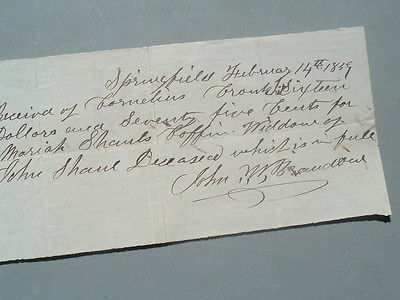 Springfield Februay 14th 1859
eceivd of Cornelius Cronk Sixteen
Dollars and Seventy five Cents for
Mariah Shauls Coffin. Widdow of
John Shaul Deceased which is in full
John W